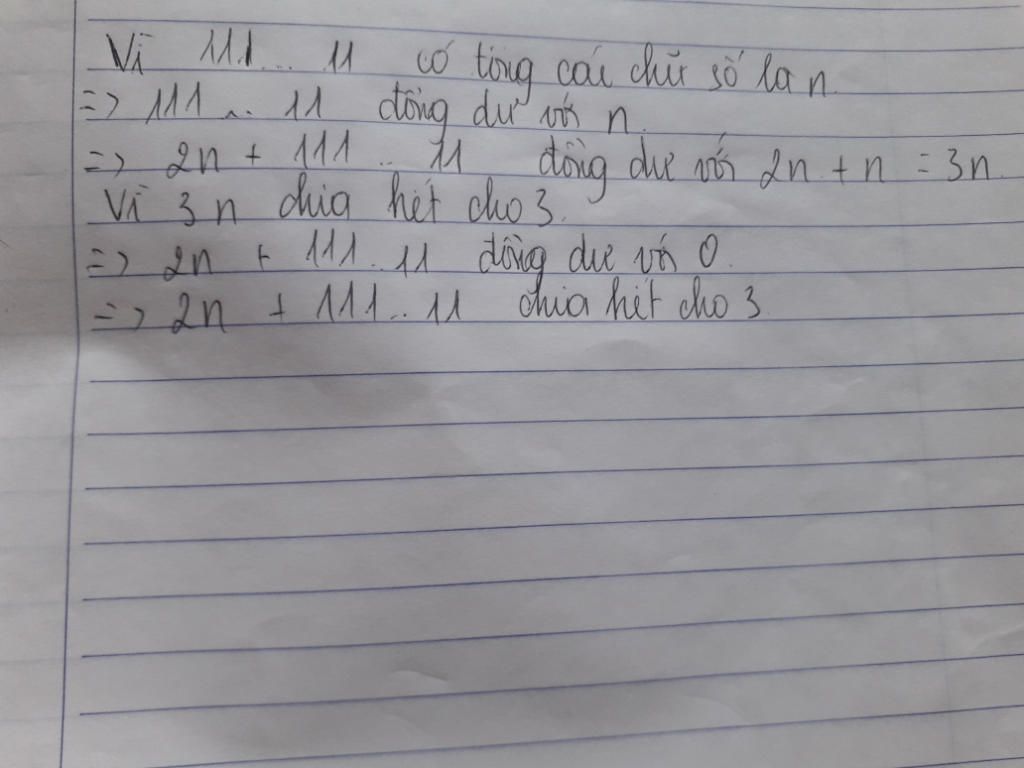 Vì 111... 11 có tổng các chữ số là n.
=> 111... 11 đồng dư với n.
=> 2n + 111... 11 đồng dư với 2n + n = 3n.
Vì 3n chia hết cho 3.
=> 2n + 111...11 đồng dư với 0.
=> 2n + 111...11 chia hết cho 3